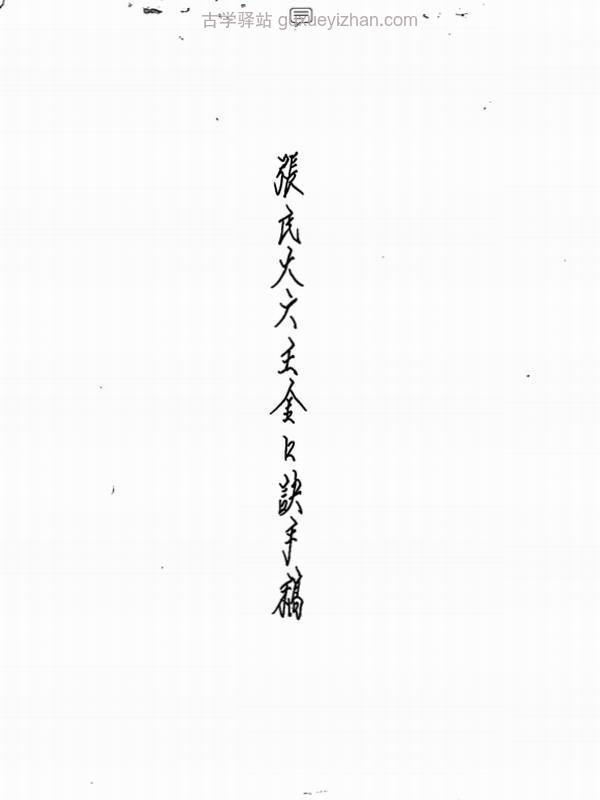 古学驿站 guxueyizhan.com
張氏大六壬金口訣手稿